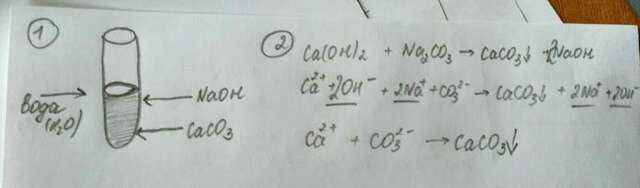 1
Вода
(H₂O)
NaOH
CaCO₃
2
Ca(OH)₂ + Na₂CO₃ → CaCO₃↓ + 2NaOH
Ca²⁺ + 2OH⁻ + 2Na⁺ + CO₃²⁻ → CaCO₃↓ + 2Na⁺ + 2OH⁻
Ca²⁺ + CO₃²⁻ → CaCO₃↓